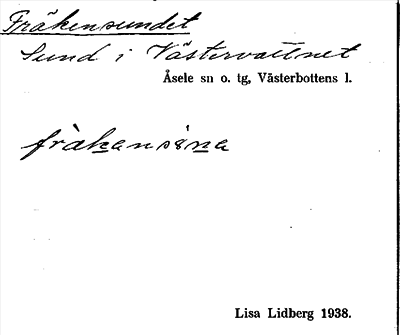 Fräkensundet
Sund i Västervattnet
Åsele sn o. tg, Västerbottens l.
Lisa Lidberg 1938.